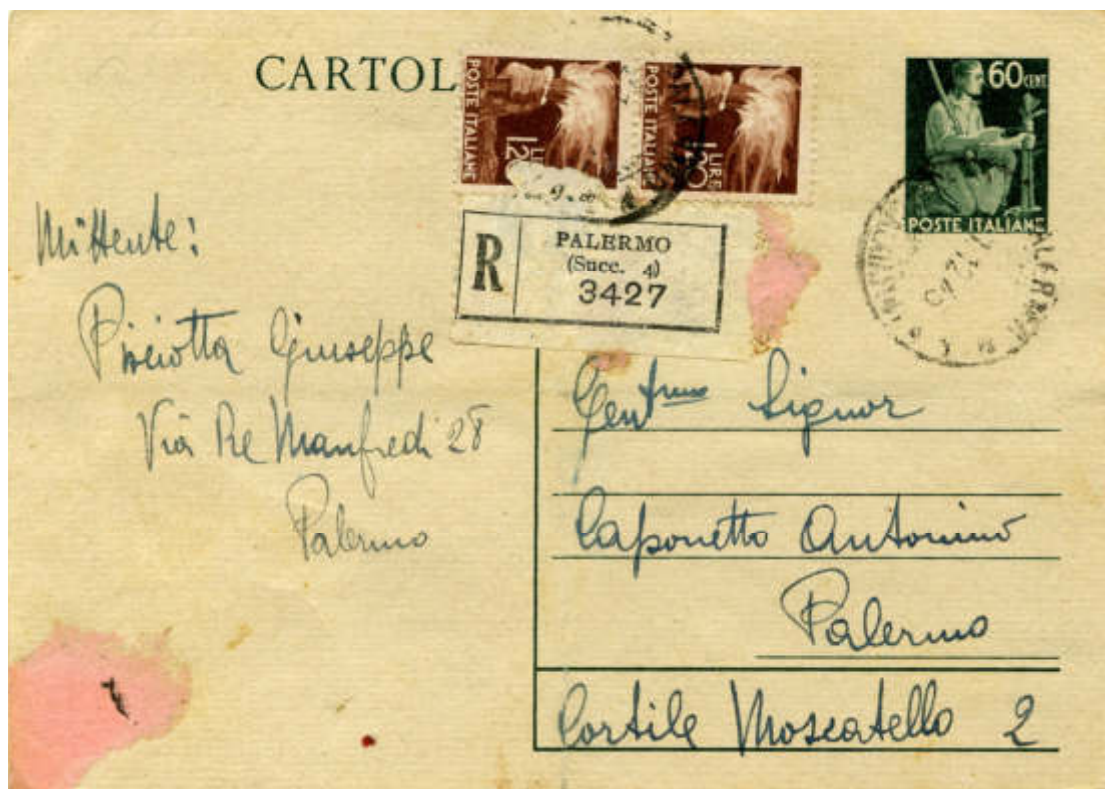 CARTOL
POSTE ITALIANE
1,20 LIRE
POSTE ITALIANE
1,20 LIRE
60 CENT
POSTE ITALIANE
R
PALERMO
(Succ. 4)
3427
Mittente:
Pisciotta Giuseppe
Via Re Manfredi 28
Palermo
Gent.mo Signor
Caponetto Antonino
Palermo
Cortile Moscatello 2